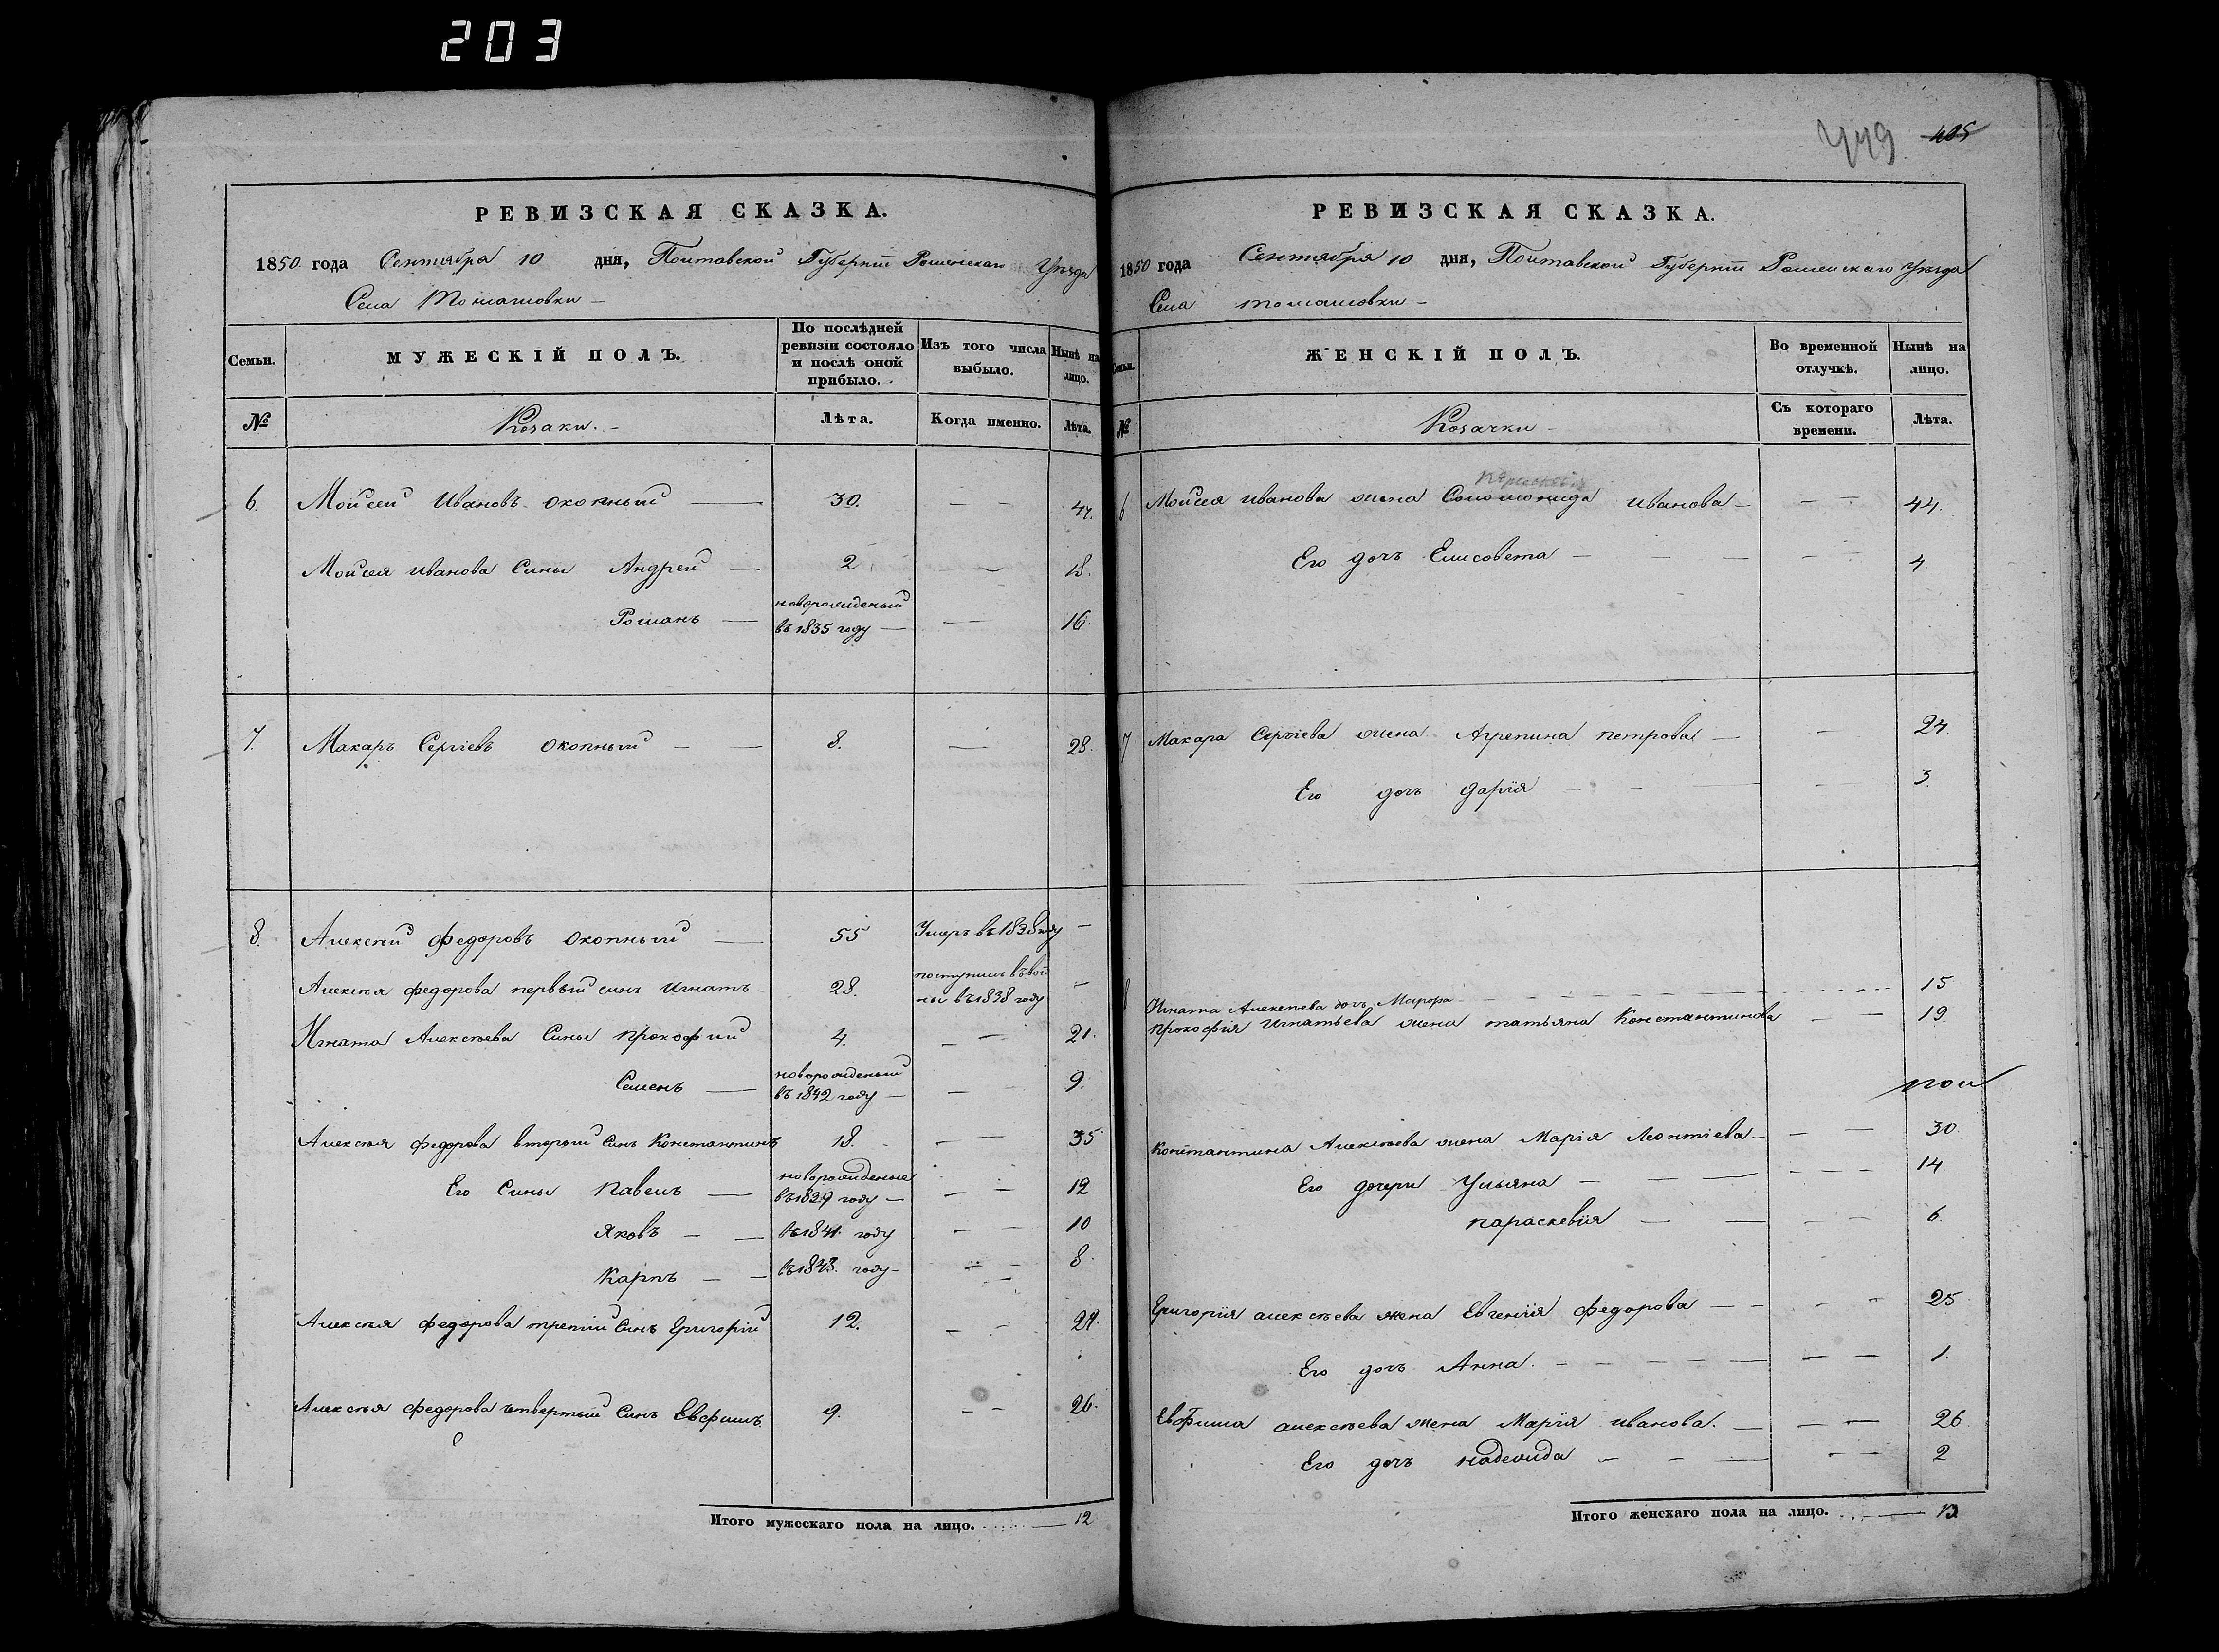 203
449 405
РЕВИЗСКАЯ СКАЗКА.
1850 года Сентября 10 дня, Полтавской Губерніи Роменскаго Уѣзда
Села Томашовки —
Семьи. МУЖЕСКІЙ ПОЛЪ. По послѣдней ревизіи состояло и послѣ оной прибыло. Изъ того числа выбыло. Нынѣ на лицо.
№ Козаки. Лѣта. Когда именно. Лѣта.
6. Мойсей Ивановъ Окопный — 30. — — 47.
Мойсея Иванова Сины Андрей — 2 — 18.
Романъ — новорожденый въ 1835 году — — 16.
7. Макаръ Сергіевъ Окопный — — 8. — 28.
8. Алексѣй Федоровъ Окопный — 55 Умеръ въ 1838 году —
Алексѣя Федорова первый синъ Игнатъ — 28. поступилъ въ 1838 году —
Игната Алексѣева Сины Прокофий 4. — — 21.
Семенъ — новорожденый въ 1842 году — — 9.
Алексѣя Федорова вторый Синъ Константинъ 18. — — 35
Его Сины Павелъ — новорожденые въ 1829 году — — — 12
Яковъ — — въ 1841 году — — 10
Карпъ — — въ 1843. году — — — 8.
Алексѣя Федорова третий Синъ Григорій 12. — — 29.
Алексѣя Федорова четвертый Синъ Евфимъ. 9. — — 26.
Итого мужескаго пола на лицо. — 12
РЕВИЗСКАЯ СКАЗКА.
1850 года Сентября 10 дня, Полтавской Губерніи Роменскаго Уѣзда
Села Томашовки —
Семьи. ЖЕНСКІЙ ПОЛЪ. Во временной отлучкѣ. Нынѣ на лицо.
№ Козачки — Съ котораго времени. Лѣта.
Параскевія
6 Мойсея Иванова жена Соломонида Иванова — — — 44.
Его дочъ Елисовета — — — — — 4.
7 Макара Сергіева жена Агрепина Петрова — — 24.
Его дочъ Дарія — — — — — 3.
8 Игната Алексѣева дочъ Марфа — — — 15
Прокофія Игнатьева жена Татьяна Константинова — — 19.
Константина Алексѣева жена Марія Леонтіева — — — 30.
Его дочери Ульяна — — — — — — 14.
Параскевія — — — — 6.
Григорія Алексѣева жена Евгенія Федорова — — — — 25
Его дочъ Анна. — — — — — — — 1.
Евфима Алексѣева жена Марія Иванова. — — — 26
Его дочъ Надежда — — — — — 2
Итого женскаго пола на лицо. — 13